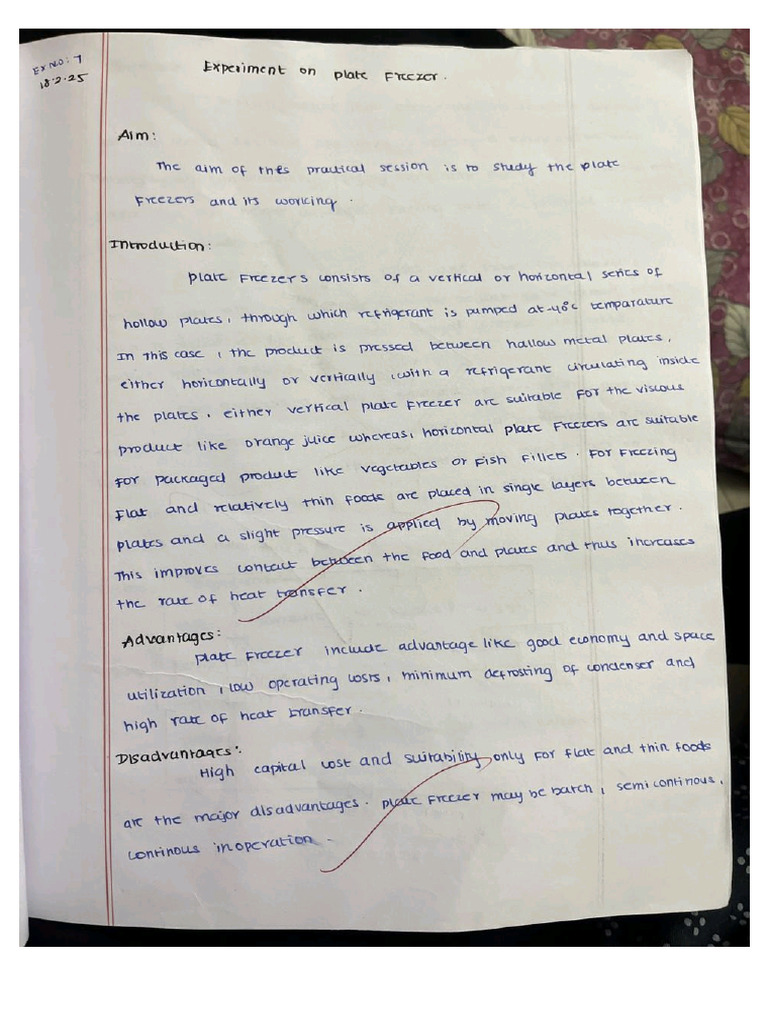 Ex NO: 7
18.2.25
Experiment on plate Freezer.
Aim:
The aim of this practical session is to study the plate
Freezers and its working.
Introduction:
Plate Freezers consists of a vertical or horizontal series of
hollow plates, through which refrigerant is pumped at -40°c temparature
In this case, the product is pressed between hallow metal plates,
either horizontally or vertically, with a refrigerant circulating inside
the plates. either vertical plate Freezer are suitable for the viscous
product like orange juice whereas, horizontal plate Freezers are suitable
for packaged product like vegetables or fish fillets. For Freezing
flat and relatively thin foods are placed in single layers between
plates and a slight pressure is applied by moving plates together.
This improves contact between the food and plates and thus increases
the rate of heat transfer.
Advantages:
Plate Freezer include advantage like good economy and space
utilization, low operating costs, minimum defrosting of condenser and
high rate of heat transfer.
Disadvantages:
High capital cost and suitability only for flat and thin foods
are the major disadvantages. Plate Freezer may be batch, semi continous,
continous in operation.